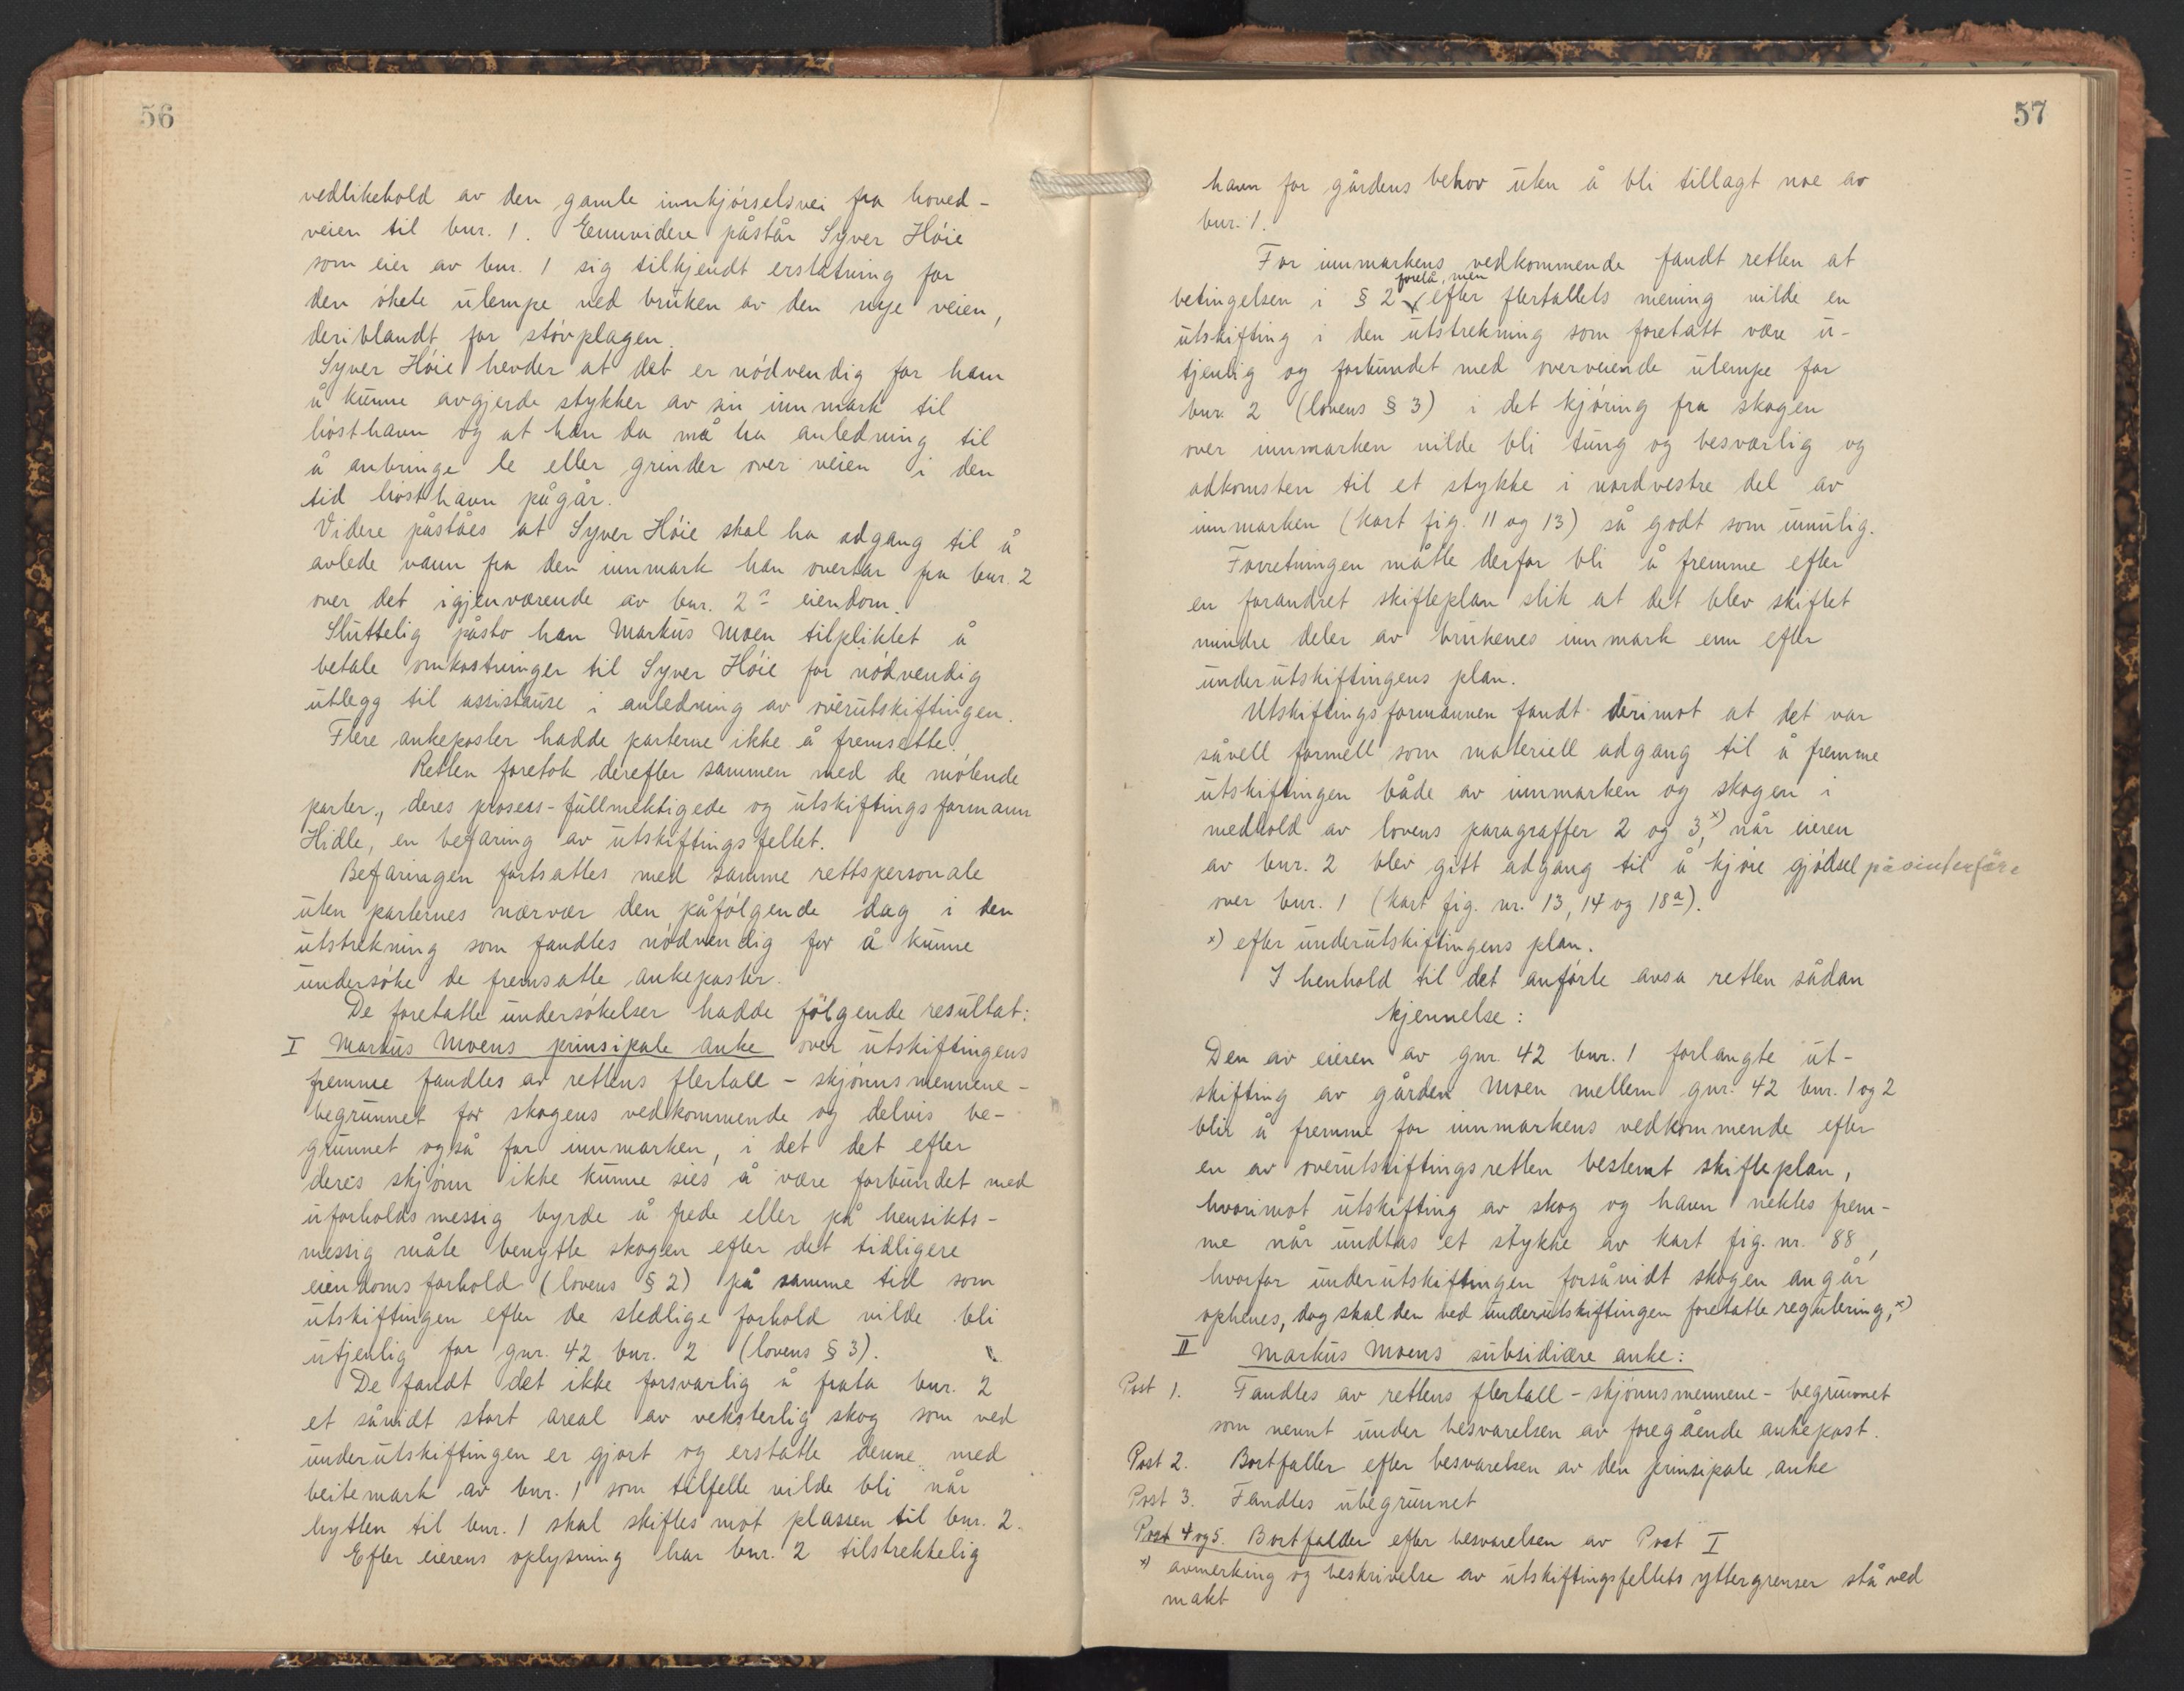 56
vedlikehold av den gamle innkjörselsvei fra hoved-
veien til bnr. 1. Ennvidere påstår Syver Höie
som eier av bnr. 1 sig tilkjendt erstatning for
den ökete ulempe ved bruken av den nye veien,
deriblandt for stövplagen.
Syver Höie hevder at det er nödvendig for ham
å kunne avgjerde stykker av sin innmark til
hösthavn og at han da må ha anledning til
å anbringe le eller grinder over veien i den
tid hösthavn pågår.
Videre påståes at Syver Höie skal ha adgang til å
avlede vann fra den innmark han overtar fra bnr. 2
over det igjenværende av bnr. 2s eiendom.
Sluttelig påsto han Markus Moen tilpliktet å
betale omkostninger til Syver Höie for nödvendig
utlegg til assistanse i anledning av overutskiftingen.
Flere ankeposter hadde parterne ikke å fremsette.
Retten foretok derefter sammen med de mötende
parter, deres prosess-fullmektigede og utskiftingsformann
Hidle, en befaring av utskiftingsfeltet.
Befaringen fortsattes med samme rettspersonale
uten parternes nærvær den påfölgende dag i den
utstrekning som fandtes nödvendig for å kunne
undersöke de fremsatte ankeposter.
De foretatte undersökelser hadde fölgende resultat:
I Markus Moens prinsipale anke over utskiftingens
fremme fandtes av rettens flertall - skjönnsmennene -
begrunnet for skogens vedkommende og delvis be-
grunnet også for innmarken, i det det efter
deres skjönn ikke kunne sies å være forbundet med
uforholdsmessig byrde å frede eller på hensikts-
messig måte benytte skogen efter det tidligere
eiendomsforhold (lovens § 2) på samme tid som
utskiftingen efter de stedlige forhold vilde bli
utjenlig for gnr. 42 bnr. 2 (lovens § 3).
De fandt det ikke forsvarlig å frata bnr. 2
et såvidt stort areal av veksterlig skog som ved
underutskiftingen er gjort og erstatte denne med
beitemark av bnr. 1 som tilfelle vilde bli når
hytten til bnr. 1 skal skiftes mot plassen til bnr. 2.
Efter eierens oplysning har bnr. 2 tilstrekkelig
57
havn for gårdens behov uten å bli tillagt noe av
bnr. 1.
For innmarkens vedkommende fandt retten at
forelå, men
betingelsen i § 2 efter flertallets mening vilde en
utskifting i den utstrekning som foretatt være u-
tjenlig og forbundet med overveiende ulempe for
bnr. 2 (lovens § 3) i det kjöring fra skogen
over innmarken vilde bli tung og besværlig og
adkomsten til et stykke i nordvestre del av
innmarken (kart fig. 11 og 13) så godt som umulig.
Forretningen måtte derfor bli å fremme efter
en forandret skifteplan slik at det blev skiftet
mindre deler av brukenes innmark enn efter
underutskiftingens plan.
Utskiftingsformannen fandt derimot at det var
såvell formell som materiell adgang til å fremme
utskiftingen både av innmarken og skogen i
medhold av lovens paragraffer 2 og 3,x) når eieren
av bnr. 2 blev gitt adgang til å kjöre gjödsel på vinterföre
over bnr. 1 (kart fig. nr. 13, 14 og 18a).
x) efter underutskiftingens plan.
I henhold til det anförte avsa retten sådan
kjennelse:
Den av eieren av gnr. 42 bnr. 1 forlangte ut-
skifting av gården Moen mellem gnr. 42 bnr. 1 og 2
blir å fremme for innmarkens vedkommende efter
en av overutskiftingsretten bestemt skifteplan,
hvorimot utskifting av skog og havn nektes frem-
me når undtas et stykke av kart fig. nr. 88,
hvorfor underutskiftingen forsåvidt skogen angår
opheves, dog skal den ved underutskiftingen foretatte regulering,x)
II Markus Moens subsidiære anke:
Post 1. Fandtes av rettens flertall - skjönnsmennene - begrunnet
som nevnt under besvarelsen av foregående ankepost.
Post 2. Bortfaller efter besvarelsen av den prinsipale anke
Post 3. Fandtes ubegrunnet
Post 4 og 5. Bortfalder efter besvarelsen av Post I
x) avmerking og beskrivelse av utskiftingsfeltets yttergrenser stå ved
makt